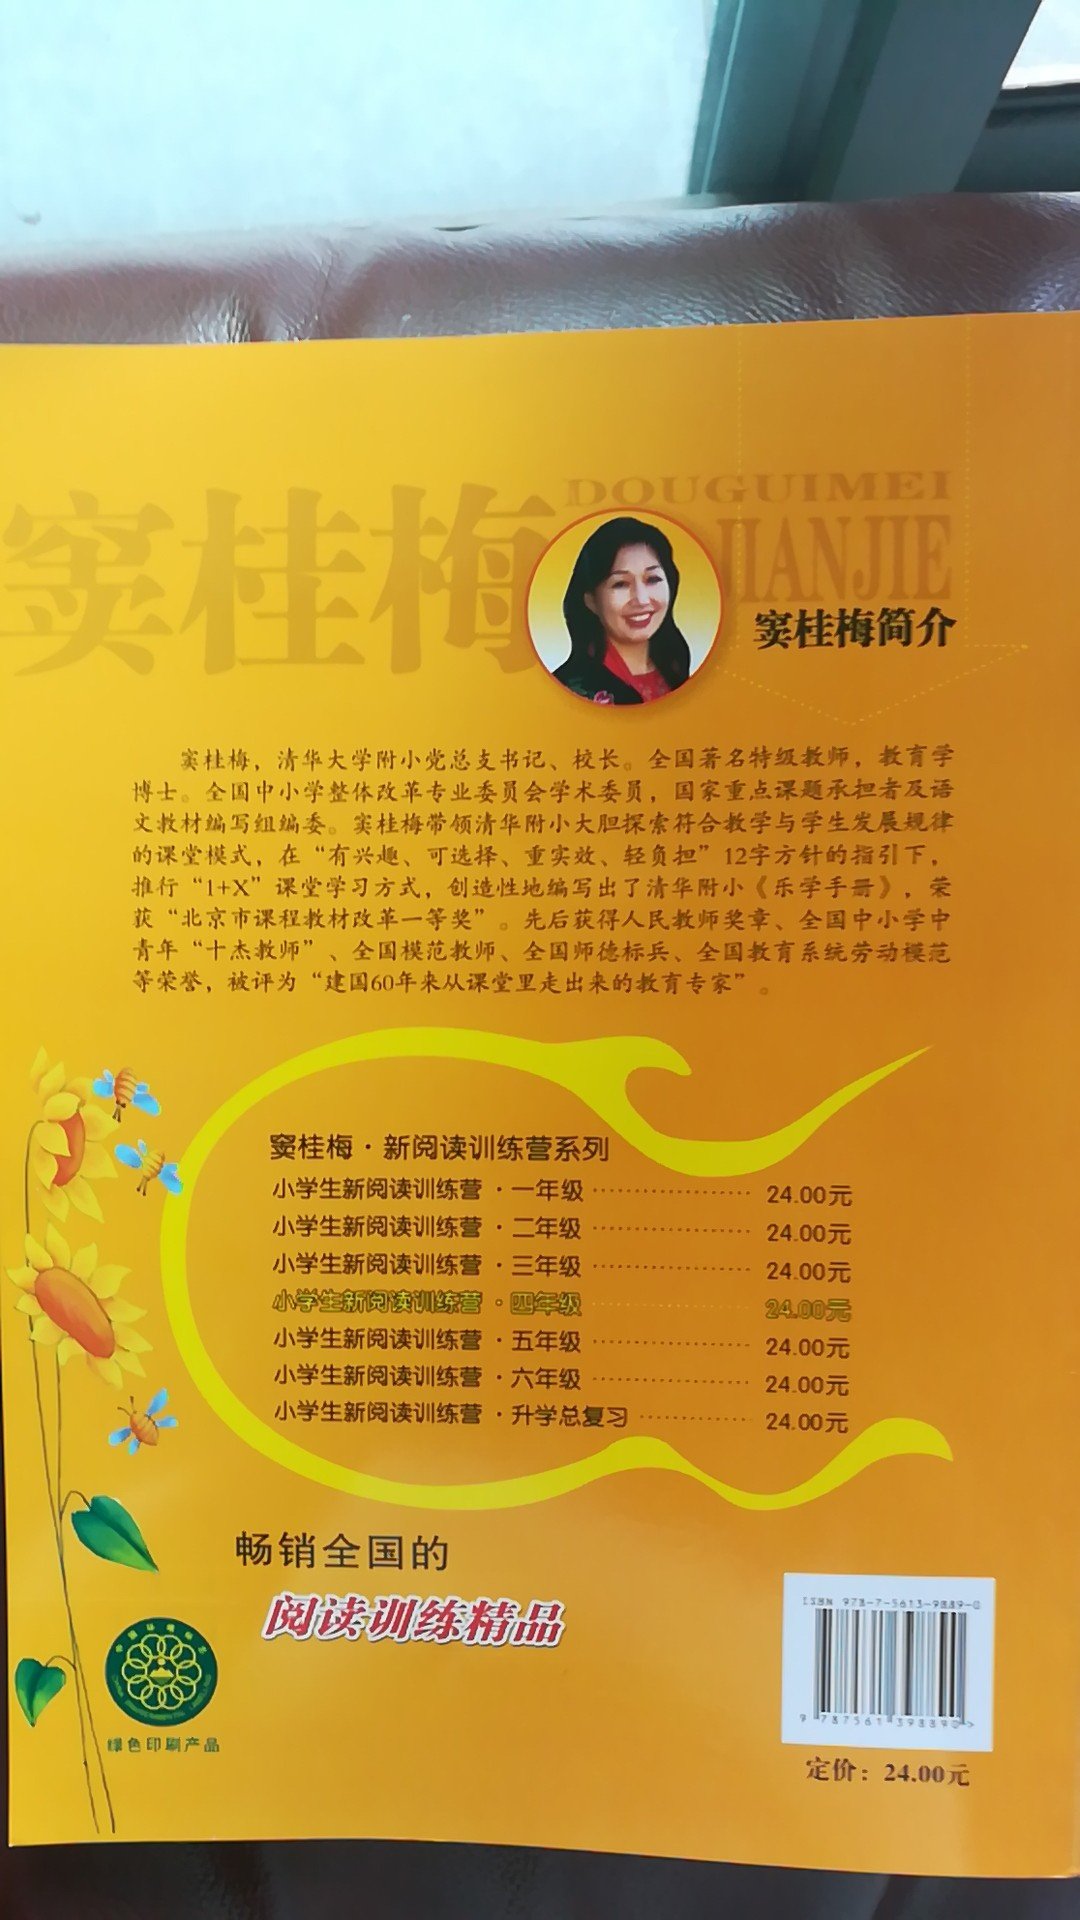 窦桂梅
DOUGUIMEI
JIANJIE
窦桂梅简介
窦桂梅，清华大学附小党总支书记、校长。全国著名特级教师，教育学
博士。全国中小学整体改革专业委员会学术委员，国家重点课题承担者及语
文教材编写组编委。窦桂梅带领清华附小大胆探索符合教学与学生发展规律
的课堂模式，在“有兴趣、可选择、重实效、轻负担”12字方针的指引下，
推行“1+X”课堂学习方式，创造性地编写出了清华附小《乐学手册》，荣
获“北京市课程教材改革一等奖”。先后获得人民教师奖章、全国中小学中
青年“十杰教师”、全国模范教师、全国师德标兵、全国教育系统劳动模范
等荣誉，被评为“建国60年来从课堂里走出来的教育专家”。
窦桂梅·新阅读训练营系列
小学生新阅读训练营·一年级 24.00元
小学生新阅读训练营·二年级 24.00元
小学生新阅读训练营·三年级 24.00元
小学生新阅读训练营·四年级 24.00元
小学生新阅读训练营·五年级 24.00元
小学生新阅读训练营·六年级 24.00元
小学生新阅读训练营·升学总复习 24.00元
畅销全国的
阅读训练精品
ISBN 978-7-5613-9889-0
9 787561 398890 >
定价：24.00元
绿色印刷产品